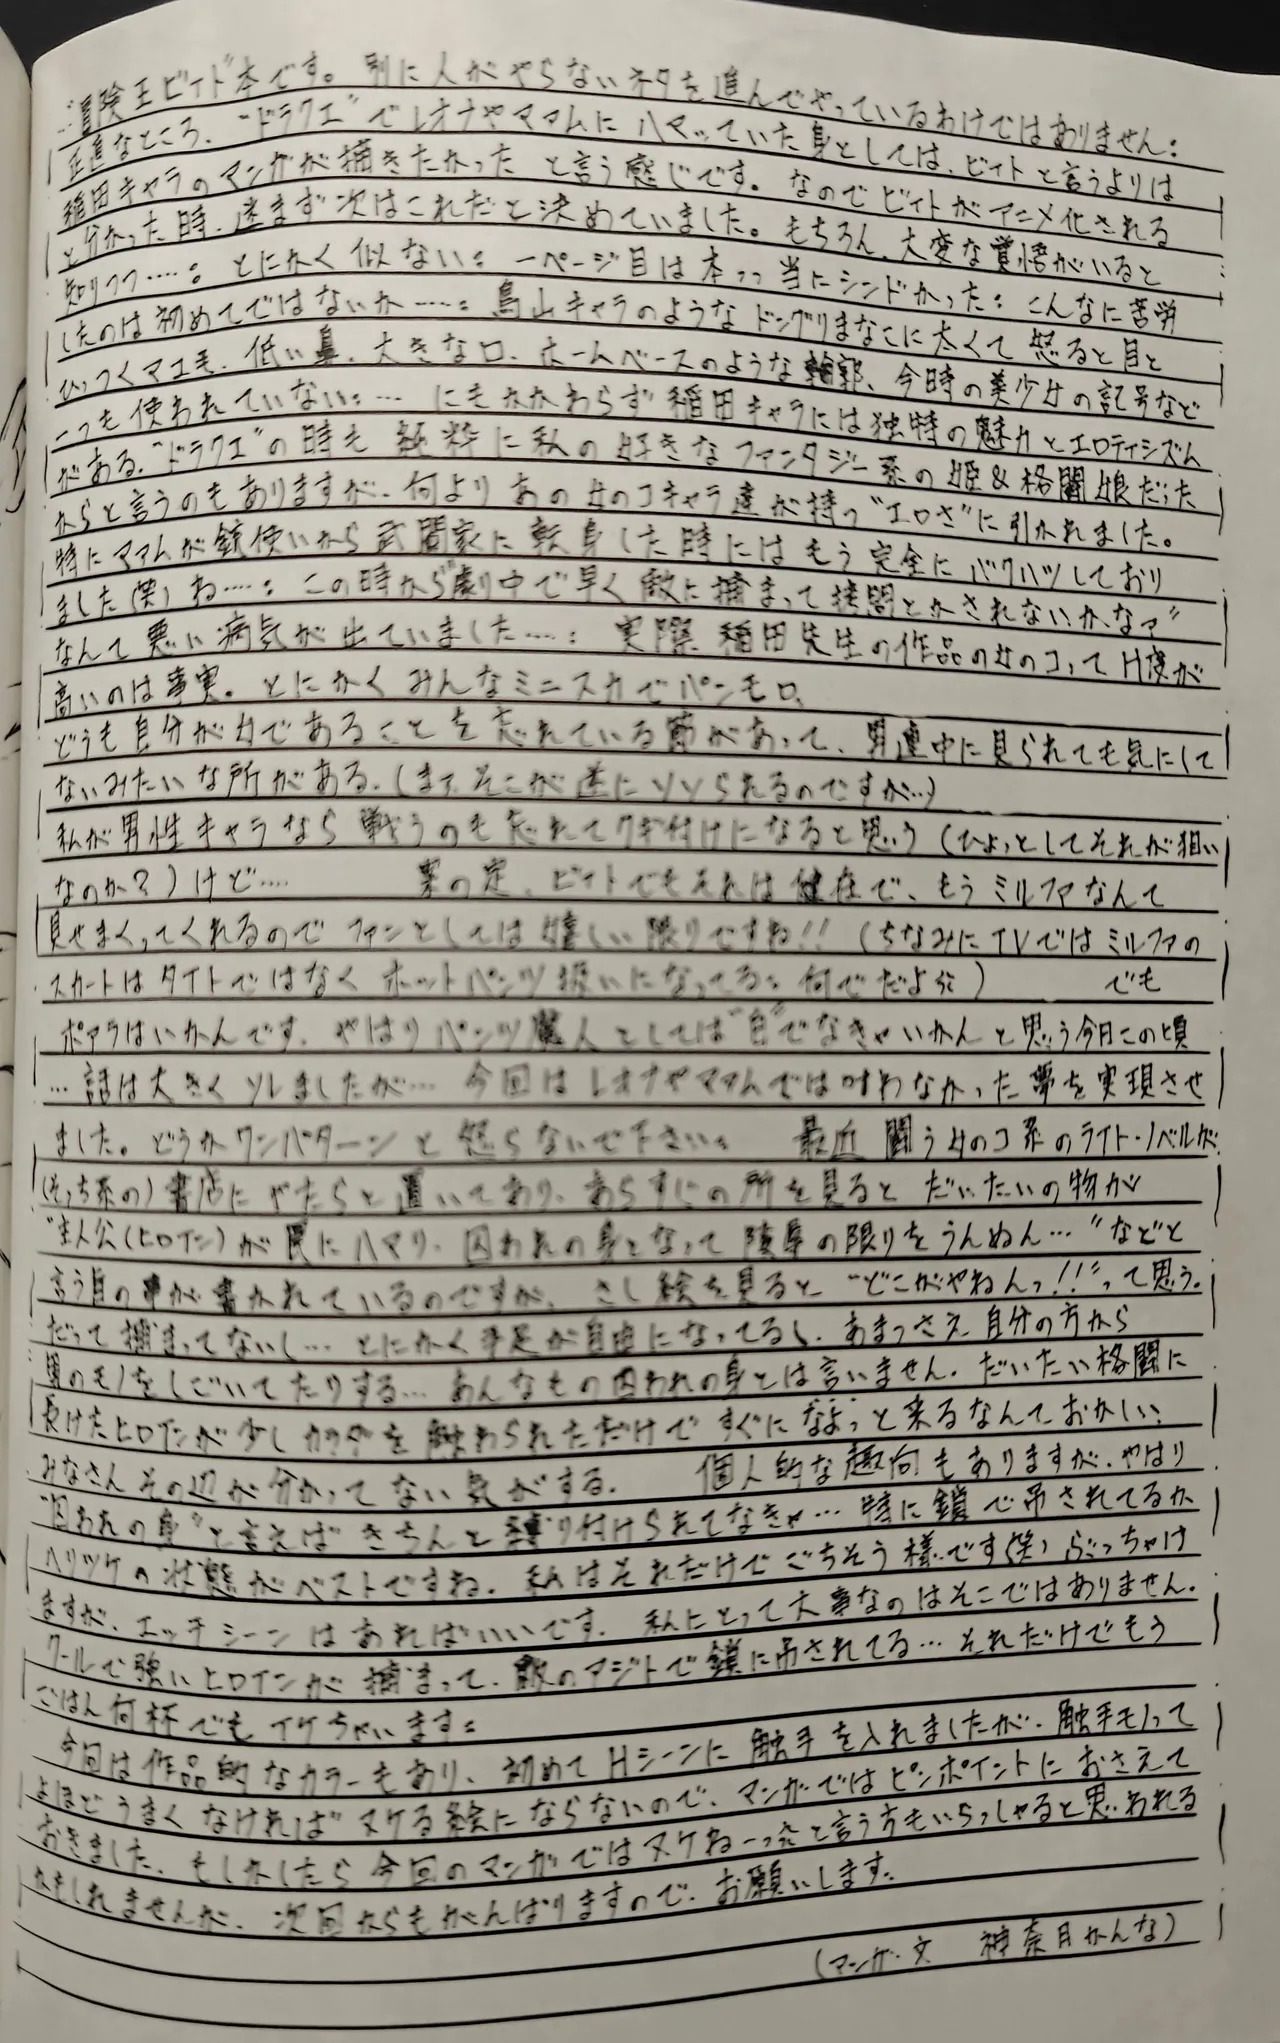 …"冒険王ビィト"本です。別に人がやらないネタを進んでやっているわけではありません;
正直なところ、"ドラクエ"でレオナやマァムにハマッていた身としては、ビィトと言うよりは
稲田キャラのマンガが描きたかったと言う感じです。なのでビィトがアニメ化される
と分かった時、迷まず次はこれだと決めていました。もちろん、大変な覚悟がいると
知りつつ…; とにかく似ない; 一ページ目は本っっ当にシンドかった; こんなに苦労
したのは初めてではないか……; 鳥山キャラのようなドングリまなこに太くて怒ると目と
ひっつくマユ毛、低い鼻、大きな口、ホームベースのような輪郭、今時の美少女の記号など
一つも使われていない;… にもかかわらず稲田キャラには独特の魅力とエロティシズム
がある。"ドラクエ"の時も純粋に私の好きなファンタジー系の姫&格闘娘だった
からと言うのもありますが、何よりあの女のコキャラ達が持つ"エロさ"に引かれました。
特にマァムが銃使いから武闘家に転身した時にはもう完全にバクハツしており
ました(笑)ね…; この時から"劇中で早く敵に捕まって拷問とかされないかなァ"
なんて悪い病気が出ていました…; 実際稲田先生の作品の女のコってH度が
高いのは事実。とにかくみんなミニスカでパンモロ、
どうも自分が女であることを忘れている節があって、男連中に見られても気にして
ないみたいな所がある。(まァそこが逆にソソられるのですが…)
私が男性キャラなら戦うのも忘れてクギ付けになると思う(ひょっとしてそれが狙い
なのか?)けど… 案の定、ビィトでもそれは健在で、もうミルファなんて
見せまくってくれるのでファンとしては嬉しい限りですね!!(ちなみにTVではミルファの
スカートはタイトではなくホットパンツ扱いになってる; 何でだよ) でも
ポアラはいかんです。やはりパンツ魔人としては"白"でなきゃいかんと思う今日この頃
…話は大きくソレましたが… 今回はレオナやマァムでは叶わなかった夢を実現させ
ました。どうかワンパターンと怒らないで下さい; 最近闘う女のコ系のライト・ノベルが
(そっち系の)書店にやたらと置いてあり、あらすじの所を見るとだいたいの物が
"主人公(ヒロイン)が罠にハマリ、囚われの身となって陵辱の限りをうんぬん…"などと
言う旨の事が書かれているのですが、さし絵を見ると"どこがやねんっ!!"って思う。
だって捕まってないし… とにかく手足が自由になってるし、あまっさえ自分の方から
男のモノをしごいてたりする… あんなもの囚われの身とは言いません。だいたい格闘に
長けたヒロインが少しカラダを触わられただけですぐになよっと来るなんておかしい;
みなさんその辺が分かってない気がする。 個人的な趣向もありますが、やはり
"囚われの身"と言えばきちんと縛り付けられてなきゃ… 特に鎖で吊されてるか
ハリツケの状態がベストですね。私はそれだけでごちそう様です(笑)ぶっちゃけ
ますが、エッチシーンはあればいいです。私にとって大事なのはそこではありません。
クールで強いヒロインが捕まって、敵のアジトで鎖に吊されてる… それだけでもう
ごはん何杯でもイケちゃいます;
今回は作品的なカラーもあり、初めてHシーンに触手を入れましたが、触手モノって
よほどうまくなければヌケる絵にならないので、マンガではピンポイントにおさえて
おきました、もしかしたら今回のマンガではヌケねーっと言う方もいらっしゃると思われる
かもしれませんが、次回からもがんばりますので、お願いします。
(マンガ・文 神奈月かんな)